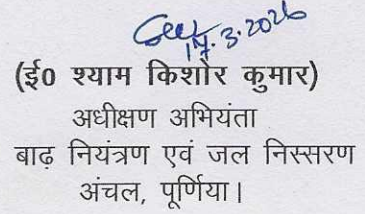 17.3.2026
(ई० श्याम किशोर कुमार)
अधीक्षण अभियंता
बाढ़ नियंत्रण एवं जल निस्सरण
अंचल, पूर्णिया।